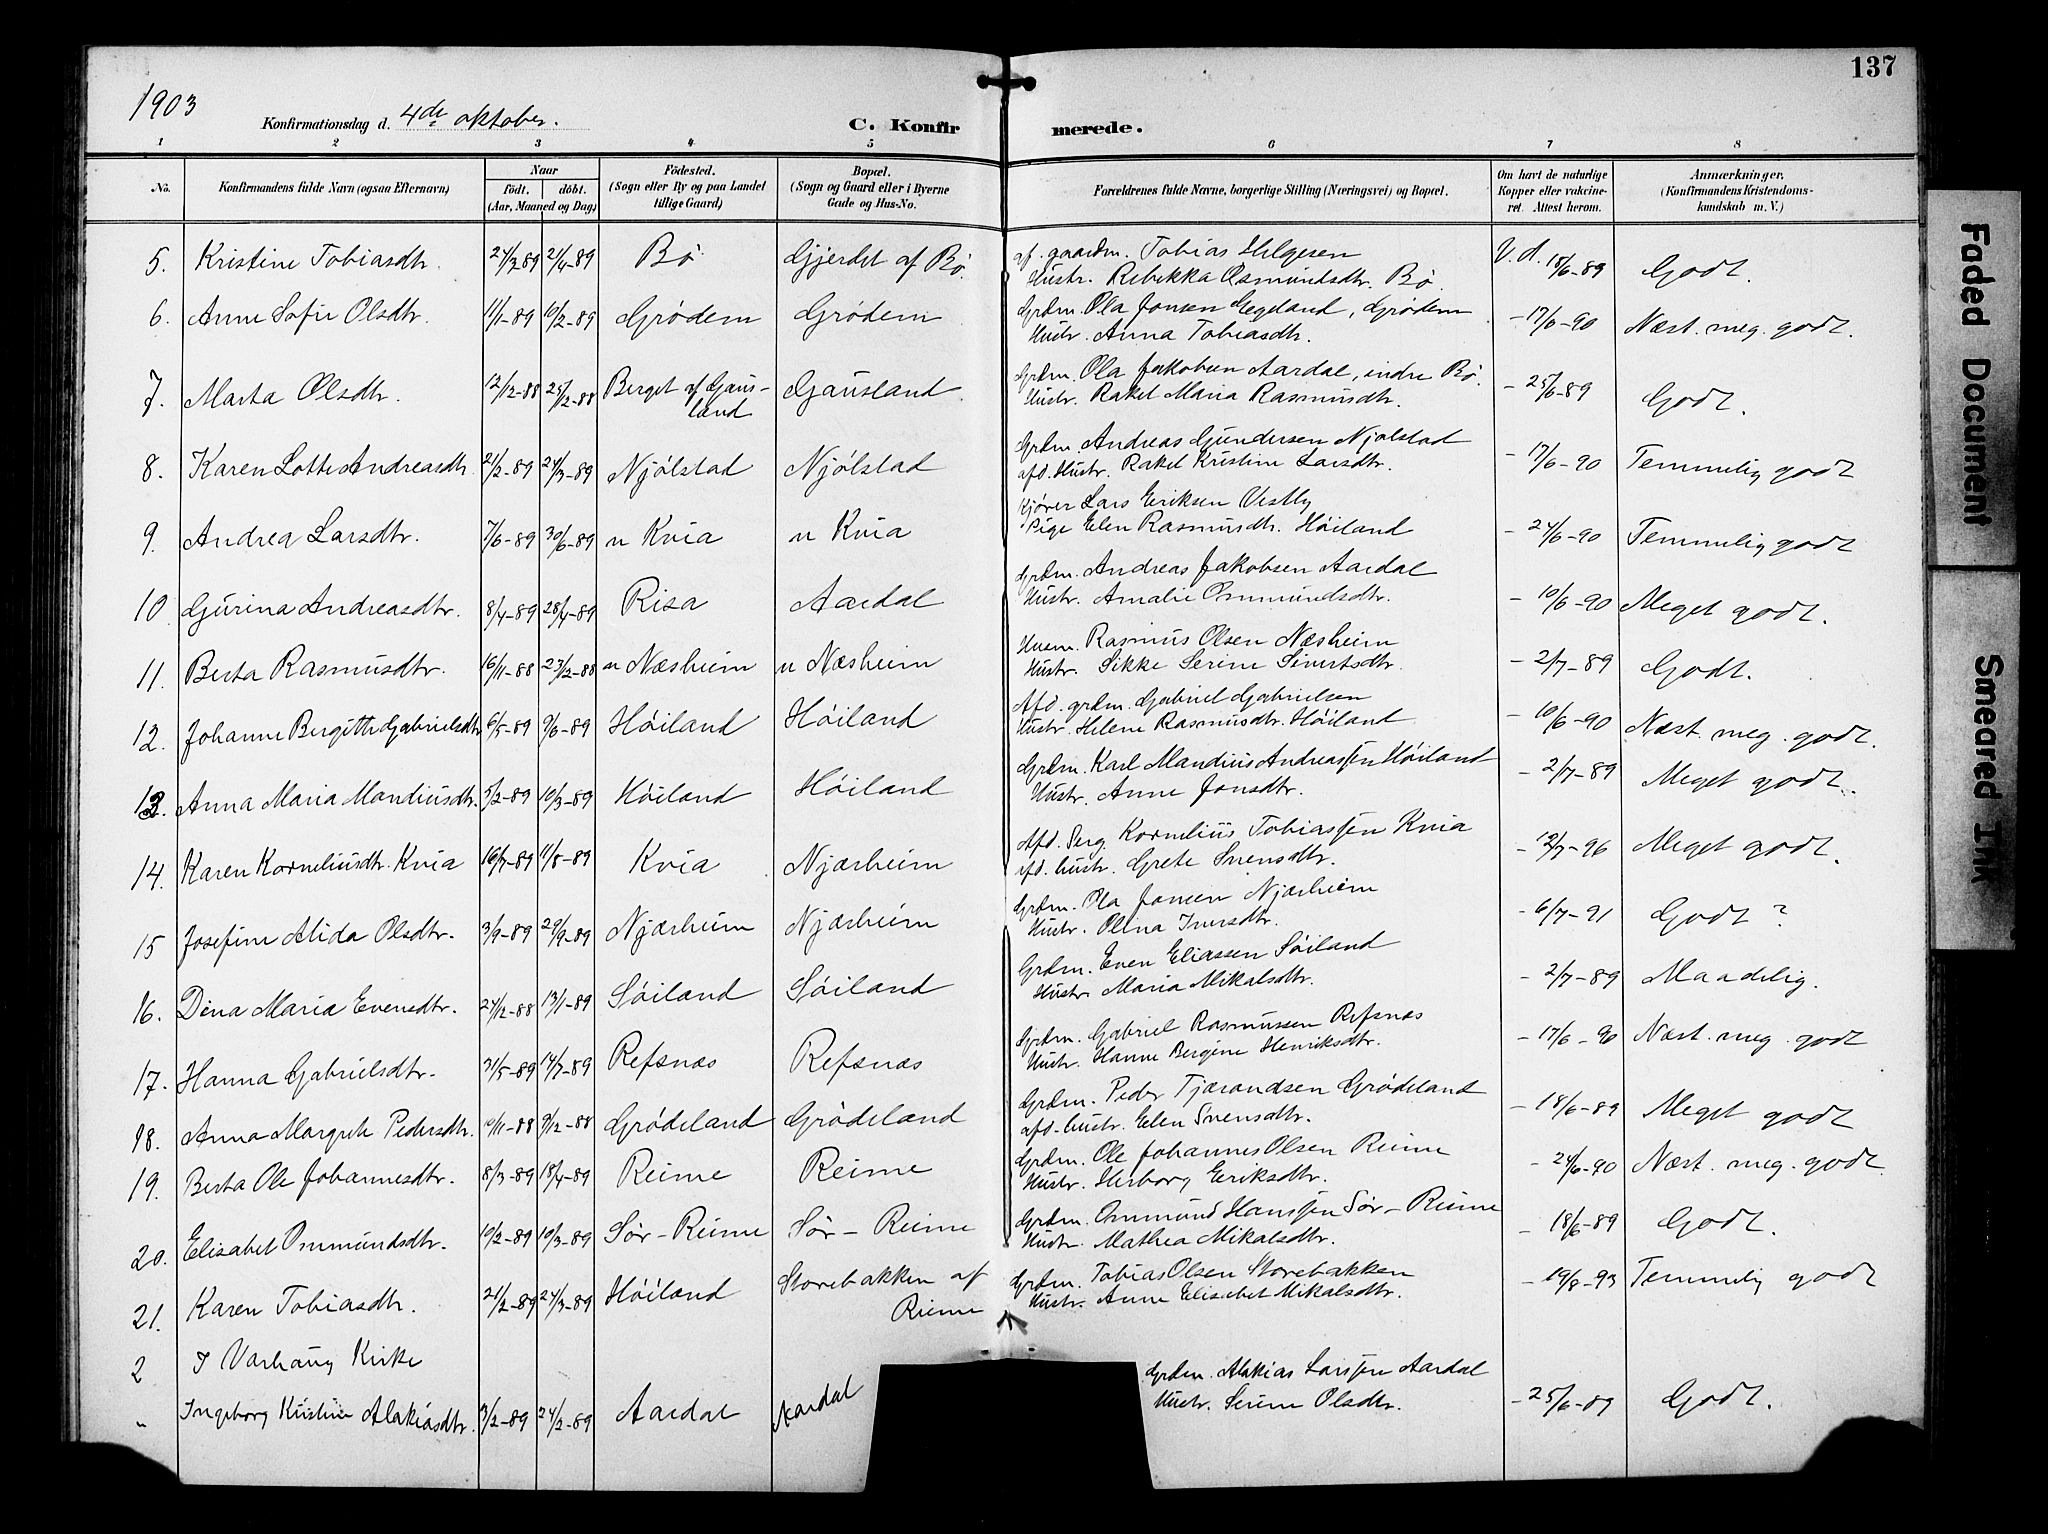 137
1903
Konfirmationsdag d. 4de oktober.
C. Konfirmerede.
1 2 3 4 5 6 7 8
No.
Konfirmandens fulde Navn (ogsaa Efternavn)
Naar
födt. döbt.
(Aar, Maaned og Dag)
Födested.
(Sogn eller By og paa Landet
tillige Gaard)
Bopæl.
(Sogn og Gaard eller i Byerne
Gade og Hus-No.
Forældrenes fulde Navne, borgerlige Stilling (Næringsvei) og Bopæl.
Om havt de naturlige
Kopper eller vakcine-
ret. Attest herom.
Anmærkninger,
(Konfirmandens Kristendoms-
kundskab m. V.)
5. Kristine Tobiasdtr. 24/3-89 21/4-89 Bö Gjerdet af Bö. af. gaardm. Tobias Helgesen
Hustr. Rebekka Osmundsdtr. Bö. V.d. 15/6-89 Godt.
6. Anne Sofie Olsdtr. 11/1-89 10/2-89 Grödem Grödem Grdm. Ola Jonsen Egeland, Grödem
Hustr. Anna Tobiasdtr. -17/6-90 Næst. meg. godt.
7. Marta Olsdtr. 12/12-88 25/12-88 Berget af Gaus-
land Gausland Grdm. Ola Jakobsen Aardal, indre Bö.
Hustr. Rakel Maria Rasmusdtr. -25/6-89 Godt.
8. Karen Lotte Andreasdtr. 21/2-89 24/3-89 Njölstad Njölstad Grdm. Andreas Gundersen Njölstad
afd. Hustr. Rakel Kristine Larsdtr. -17/6-90 Temmelig godt
9. Andrea Larsdtr. 7/6-89 30/6-89 n Kvia n Kvia Kjörer Lars Eriksen Vestly
Pige Elen Rasmusdtr. Höiland -24/6-90 Temmelig godt
10 Gurina Andreasdtr. 8/4-89 28/4-89 Risa Aardal Grdm. Andreas Jakobsen Aardal
Hustr. Amalie Ommundsdtr. -10/6-90 Meget godt.
11. Berta Rasmusdtr. 16/11-88 23/12-88 n Næsheim n Næsheim Huem. Rasmus Olsen Næsheim
Hustr. Sikke Serine Sivertsdtr. -2/7-89 Godt.
12. Johanne Bergitte Gabrielsdtr. 6/5-89 9/6-89 Höiland Höiland Afd. grdm. Gabriel Gabrielsen
Hustr. Helene Rasmusdtr. Höiland -10/6-90 Næst. meg. godt.
13. Anna Maria Mandiusdtr. 5/2-89 10/3-89 Höiland Höiland Grdm. Karl Mandius Andreassen Höiland
Hustr. Anne Jonsdtr. -2/7-89 Meget godt.
14. Karen Korneliusdtr. Kvia 16/7-89 11/8-89 Kvia Njærheim Afd. Serg. Kornelius Tobiassen Kvia
afd. hustr. Grete Svensdtr. -12/7-96 Meget godt.
15 Josefine Alida Olsdtr. 3/9-89 29/9-89 Njærheim Njærheim Grdm. Ola Jonsen Njærheim
Hustr. Olina Iversdtr. -6/7-91 Godt?
16. Dina Maria Evensdtr. 24/12-88 13/1-89 Söiland Söiland Grdm. Even Eliassen Söiland
Hustr. Maria Mikalsdtr. -2/7-89 Maadelig.
17. Hanna Gabrielsdtr. 31/5-89 14/7-89 Refsnæs Refsnæs Grdm. Gabriel Rasmussen Refsnæs
Hustr. Hanne Bergine Henriksdtr. -17/6-90 Næst. meg. godt
18. Anna Margrete Pedersdtr. 10/11-88 9/12-88 Grödeland Grödeland Grdm. Peder Tjærandsen Grödeland
afd. hustr. Elen Svensdtr. -18/6-89 Meget godt
19. Berta Ole Johannesdtr. 8/3-89 18/4-89 Reime Reime Grdm. Ole Johannes Olsen Reime
Hustr. Herborg Eriksdtr. -24/6-90 Næst. meg. godt
20. Elisabet Ommundsdtr. 10/2-89 10/3-89 Sör-Reime Sör-Reime Grdm. Ommund Hanssen Sör-Reime
Hustr. Mathea Mikalsdtr. -18/6-89 Godt.
21. Karen Tobiasdtr. 21/2-89 24/3-89 Höiland Storebakken af
Reime Grdm. Tobias Olsen Storebakken
Hustr. Anne Elisabet Mikalsdtr. -19/8-93 Temmelig godt
2 I Varhaug Kirke
" Ingeborg Kristine Alakiasdtr. 3/2-89 24/2-89 Aardal Aardal Grdm. Alakias Larssen Aardal
Hustr. Serine Olsdtr. -25/6-89 Godt.
Faded Document
Smeared Ink